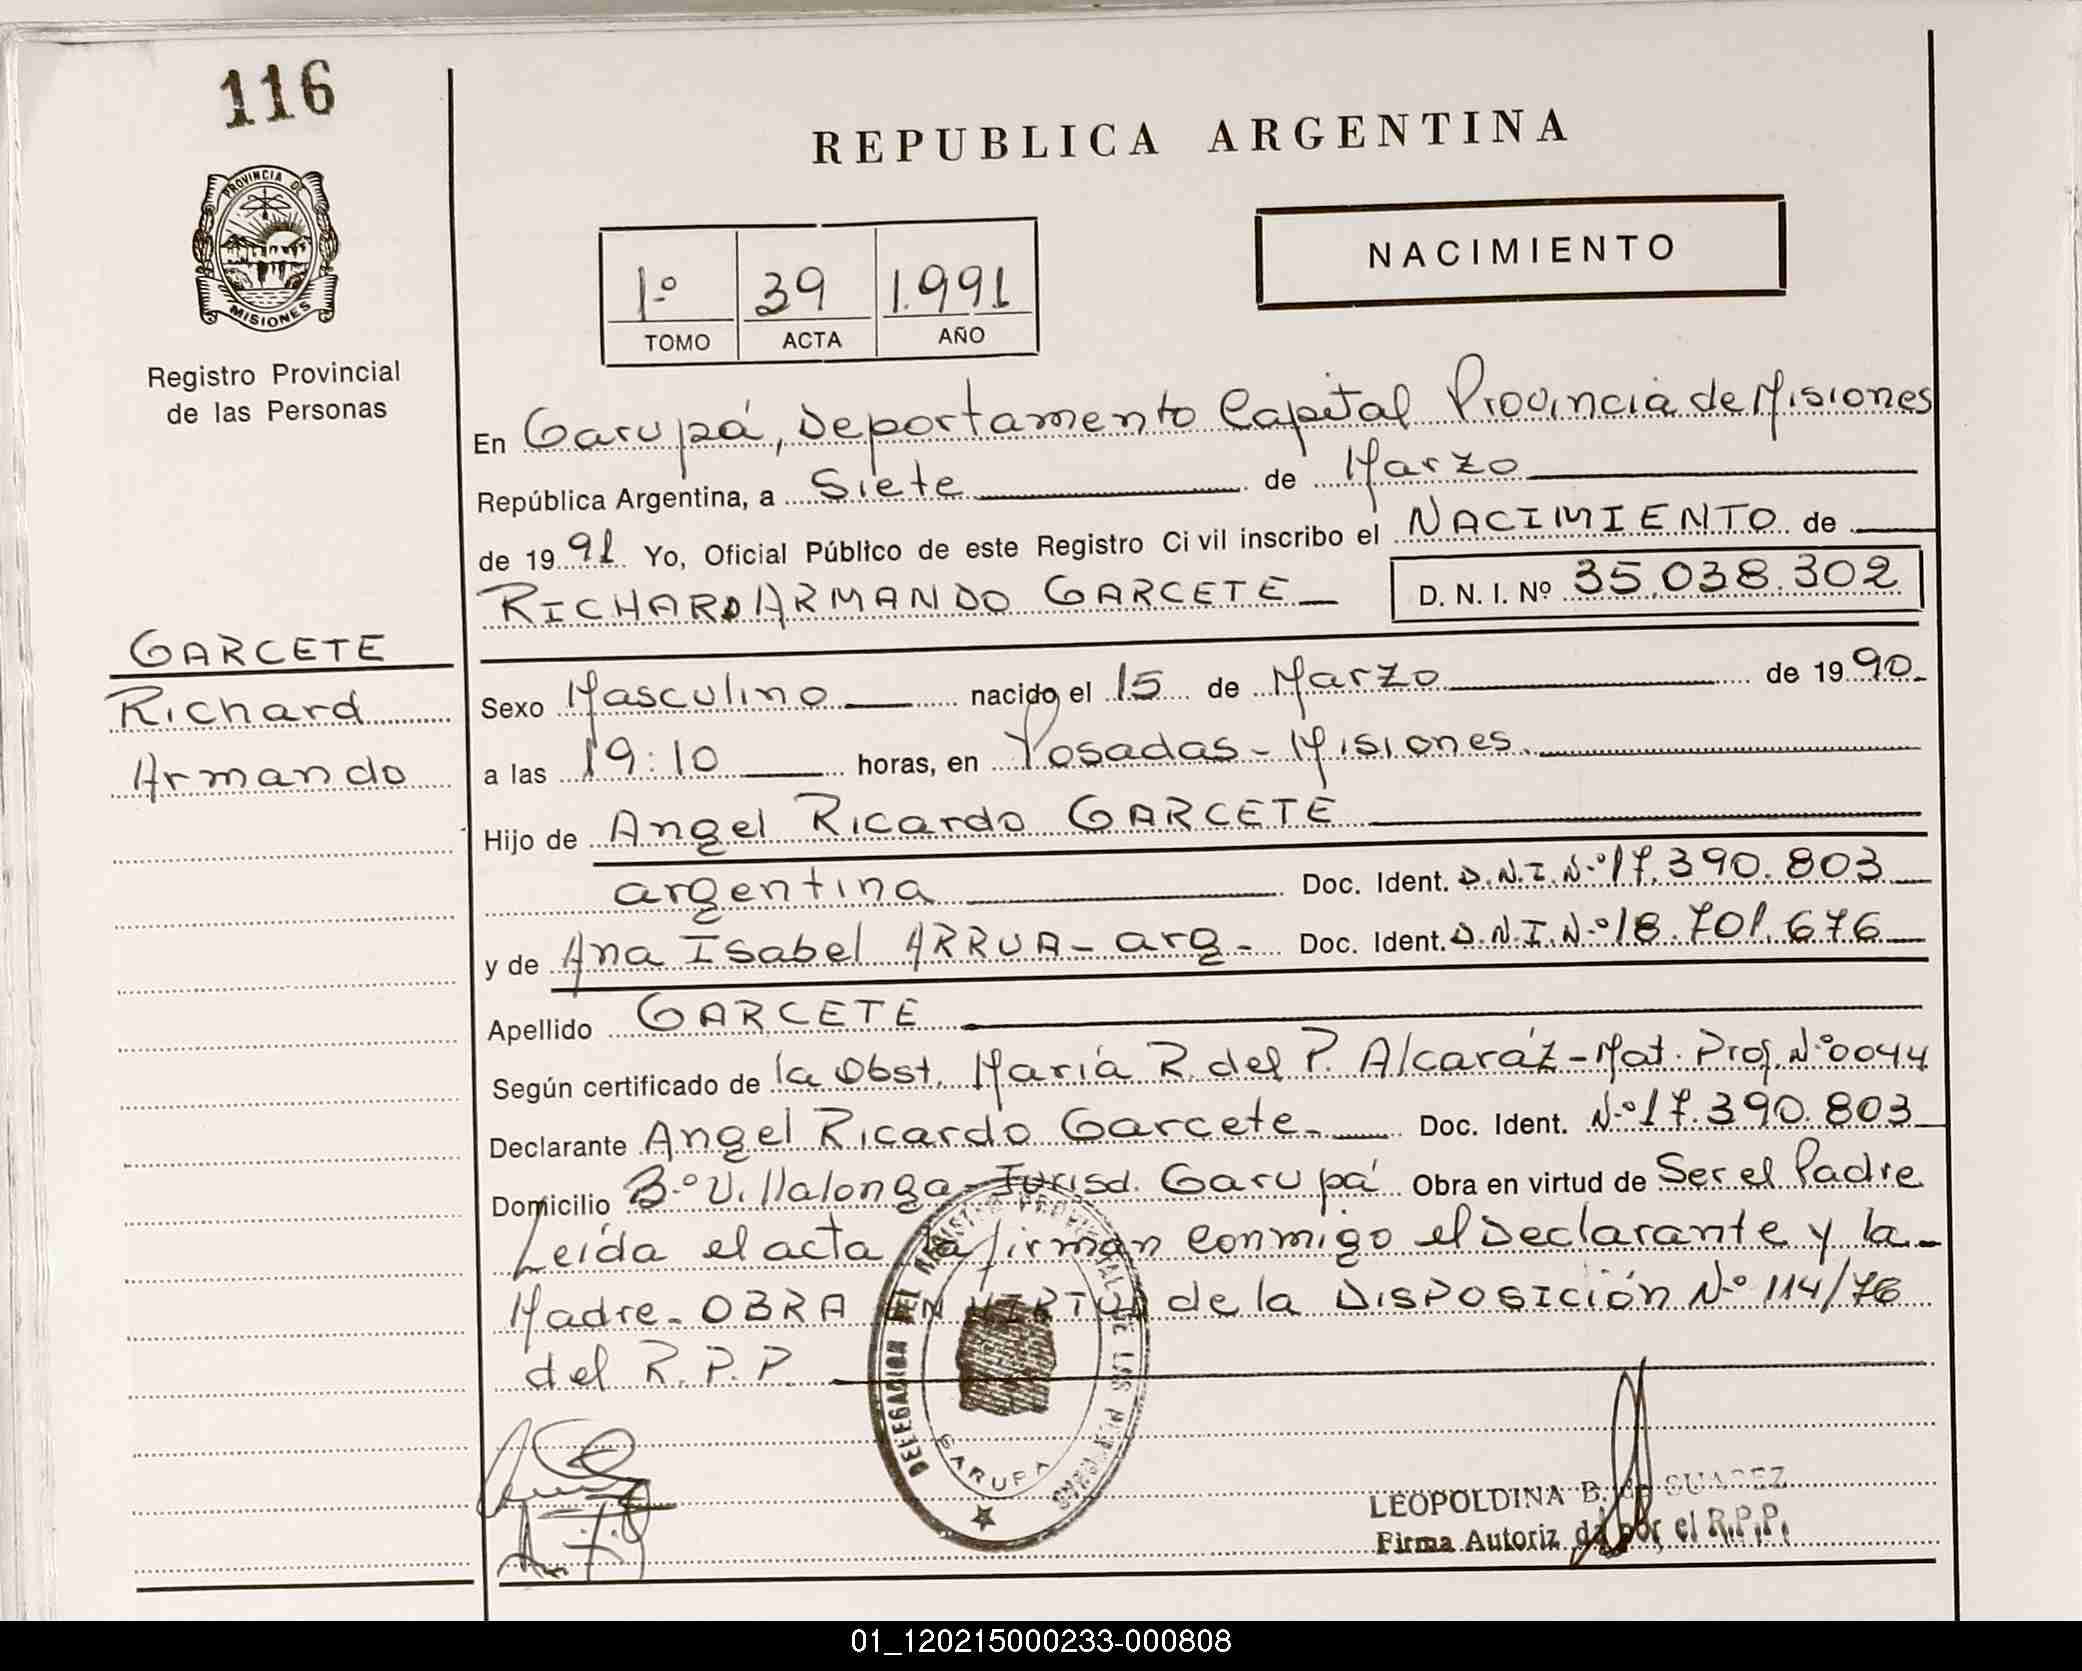 116
REPUBLICA ARGENTINA
PROVINCIA DE
MISIONES
Registro Provincial
de las Personas
NACIMIENTO
1º 39 1.991
TOMO ACTA AÑO
En Garupá, Departamento Capital Provincia de Misiones
República Argentina, a Siete de Marzo
de 1991 Yo, Oficial Público de este Registro Civil inscribo el NACIMIENTO de
RICHARD ARMANDO GARCETE D. N. I. Nº 35.038.302
GARCETE
Richard
Armando
Sexo Masculino nacido el 15 de Marzo de 1990
a las 19:10 horas, en Posadas - Misiones
Hijo de Angel Ricardo GARCETE
argentina Doc. Ident. D.N.I.Nº 17.390.803
y de Ana Isabel ARRUA - arg - Doc. Ident. D.N.I.Nº 18.701.676
Apellido GARCETE
Según certificado de la Obst. María R. del P. Alcaráz - Mat. Prof. Nº 0044
Declarante Angel Ricardo Garcete Doc. Ident. Nº 17.390.803
Domicilio Bº Villalonga - Jurisd. Garupá Obra en virtud de Ser el Padre
Leída el acta la firman conmigo el Declarante y la
Madre - OBRA EN VIRTUD de la DISPOSICIÓN Nº 114/76
del R.P.P.
DELEGACION DEL REGISTRO PROVINCIAL DE LAS PERSONAS
GARUPA
LEOPOLDINA B. de SUAREZ
Firma Autorizada por el R.P.P.
01_120215000233-000808